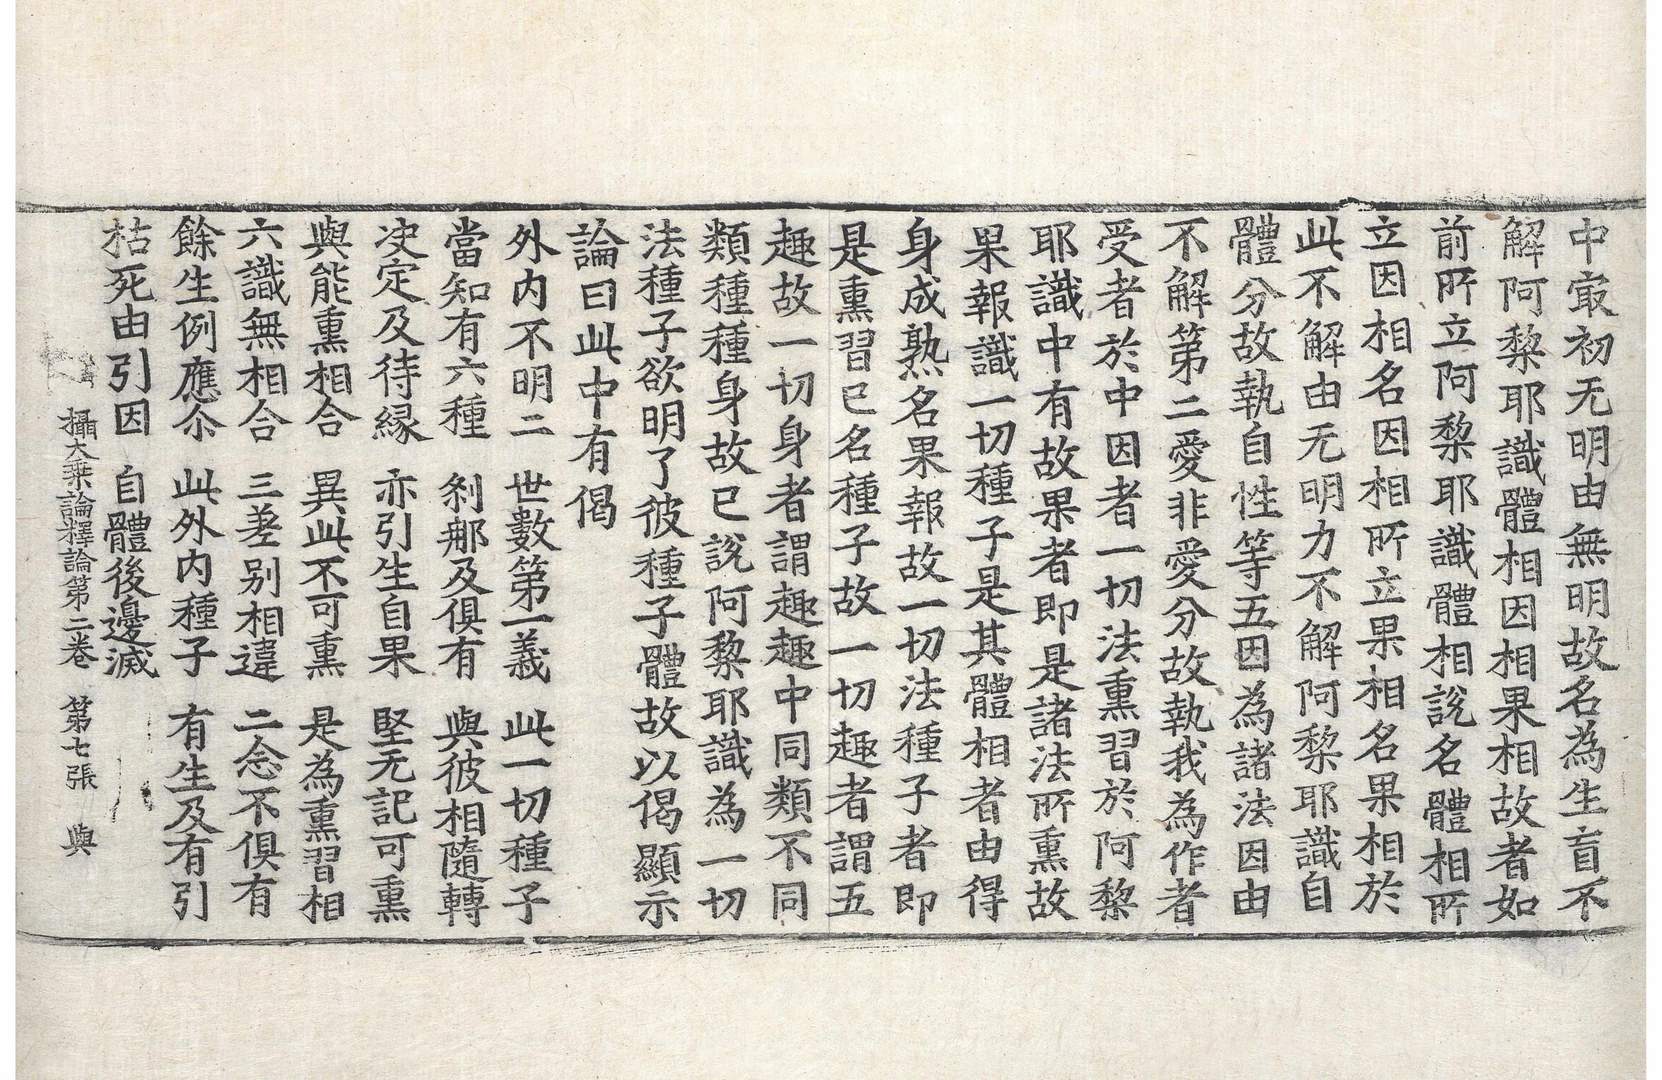 中㝡初无明由無明故名為生盲不
解阿棃耶識體相因相果相故者如
前所立阿棃耶識體相說名體相所
立因相名因相所立果相名果相於
此不解由无明力不解阿棃耶識自
體分故執自性等五因為諸法因由
不解第二愛非愛分故執我為作者
受者於中因者一切法熏習於阿棃
耶識中有故果者即是諸法所熏故
果報識一切種子是其體相者由得
身成熟名果報故一切法種子者即
是熏習已名種子故一切趣者謂五
趣故一切身者謂趣趣中同類不同
類種種身故已說阿棃耶識為一切
法種子欲明了彼種子體故以偈顯示
論曰此中有偈
外内不明二　世數第一義　此一切種子
當知有六種　刹那及俱有　與彼相隨轉
决定及待縁　亦引生自果　堅无記可熏
與能熏相合　異此不可熏　是為熏習相
六識無相合　三差別相違　二念不俱有
餘生例應尒　此外内種子　有生及有引
枯死由引因　自體後邊滅
攝大乘論釋論第二卷　第七張　與